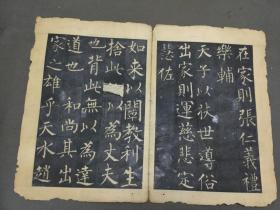 在家則張仁義禮
樂輔
天子以扶世導俗
出家則運慈悲定
慧佐
如来以闡教利生
捨此以為丈夫
也背此無以為達
道也和尚其出
家之雄乎天水趙